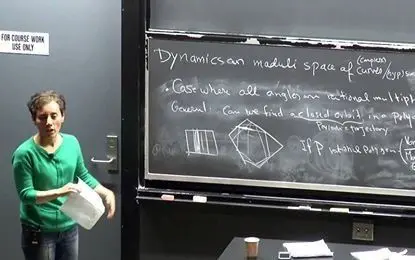 FOR COURSE WORK
USE ONLY
Dynamics on moduli space of (complex)
curves/hyp
• Case where all angles are rational multip
General: Can we find a closed orbit in a poly
trajectory
If P rational polygon